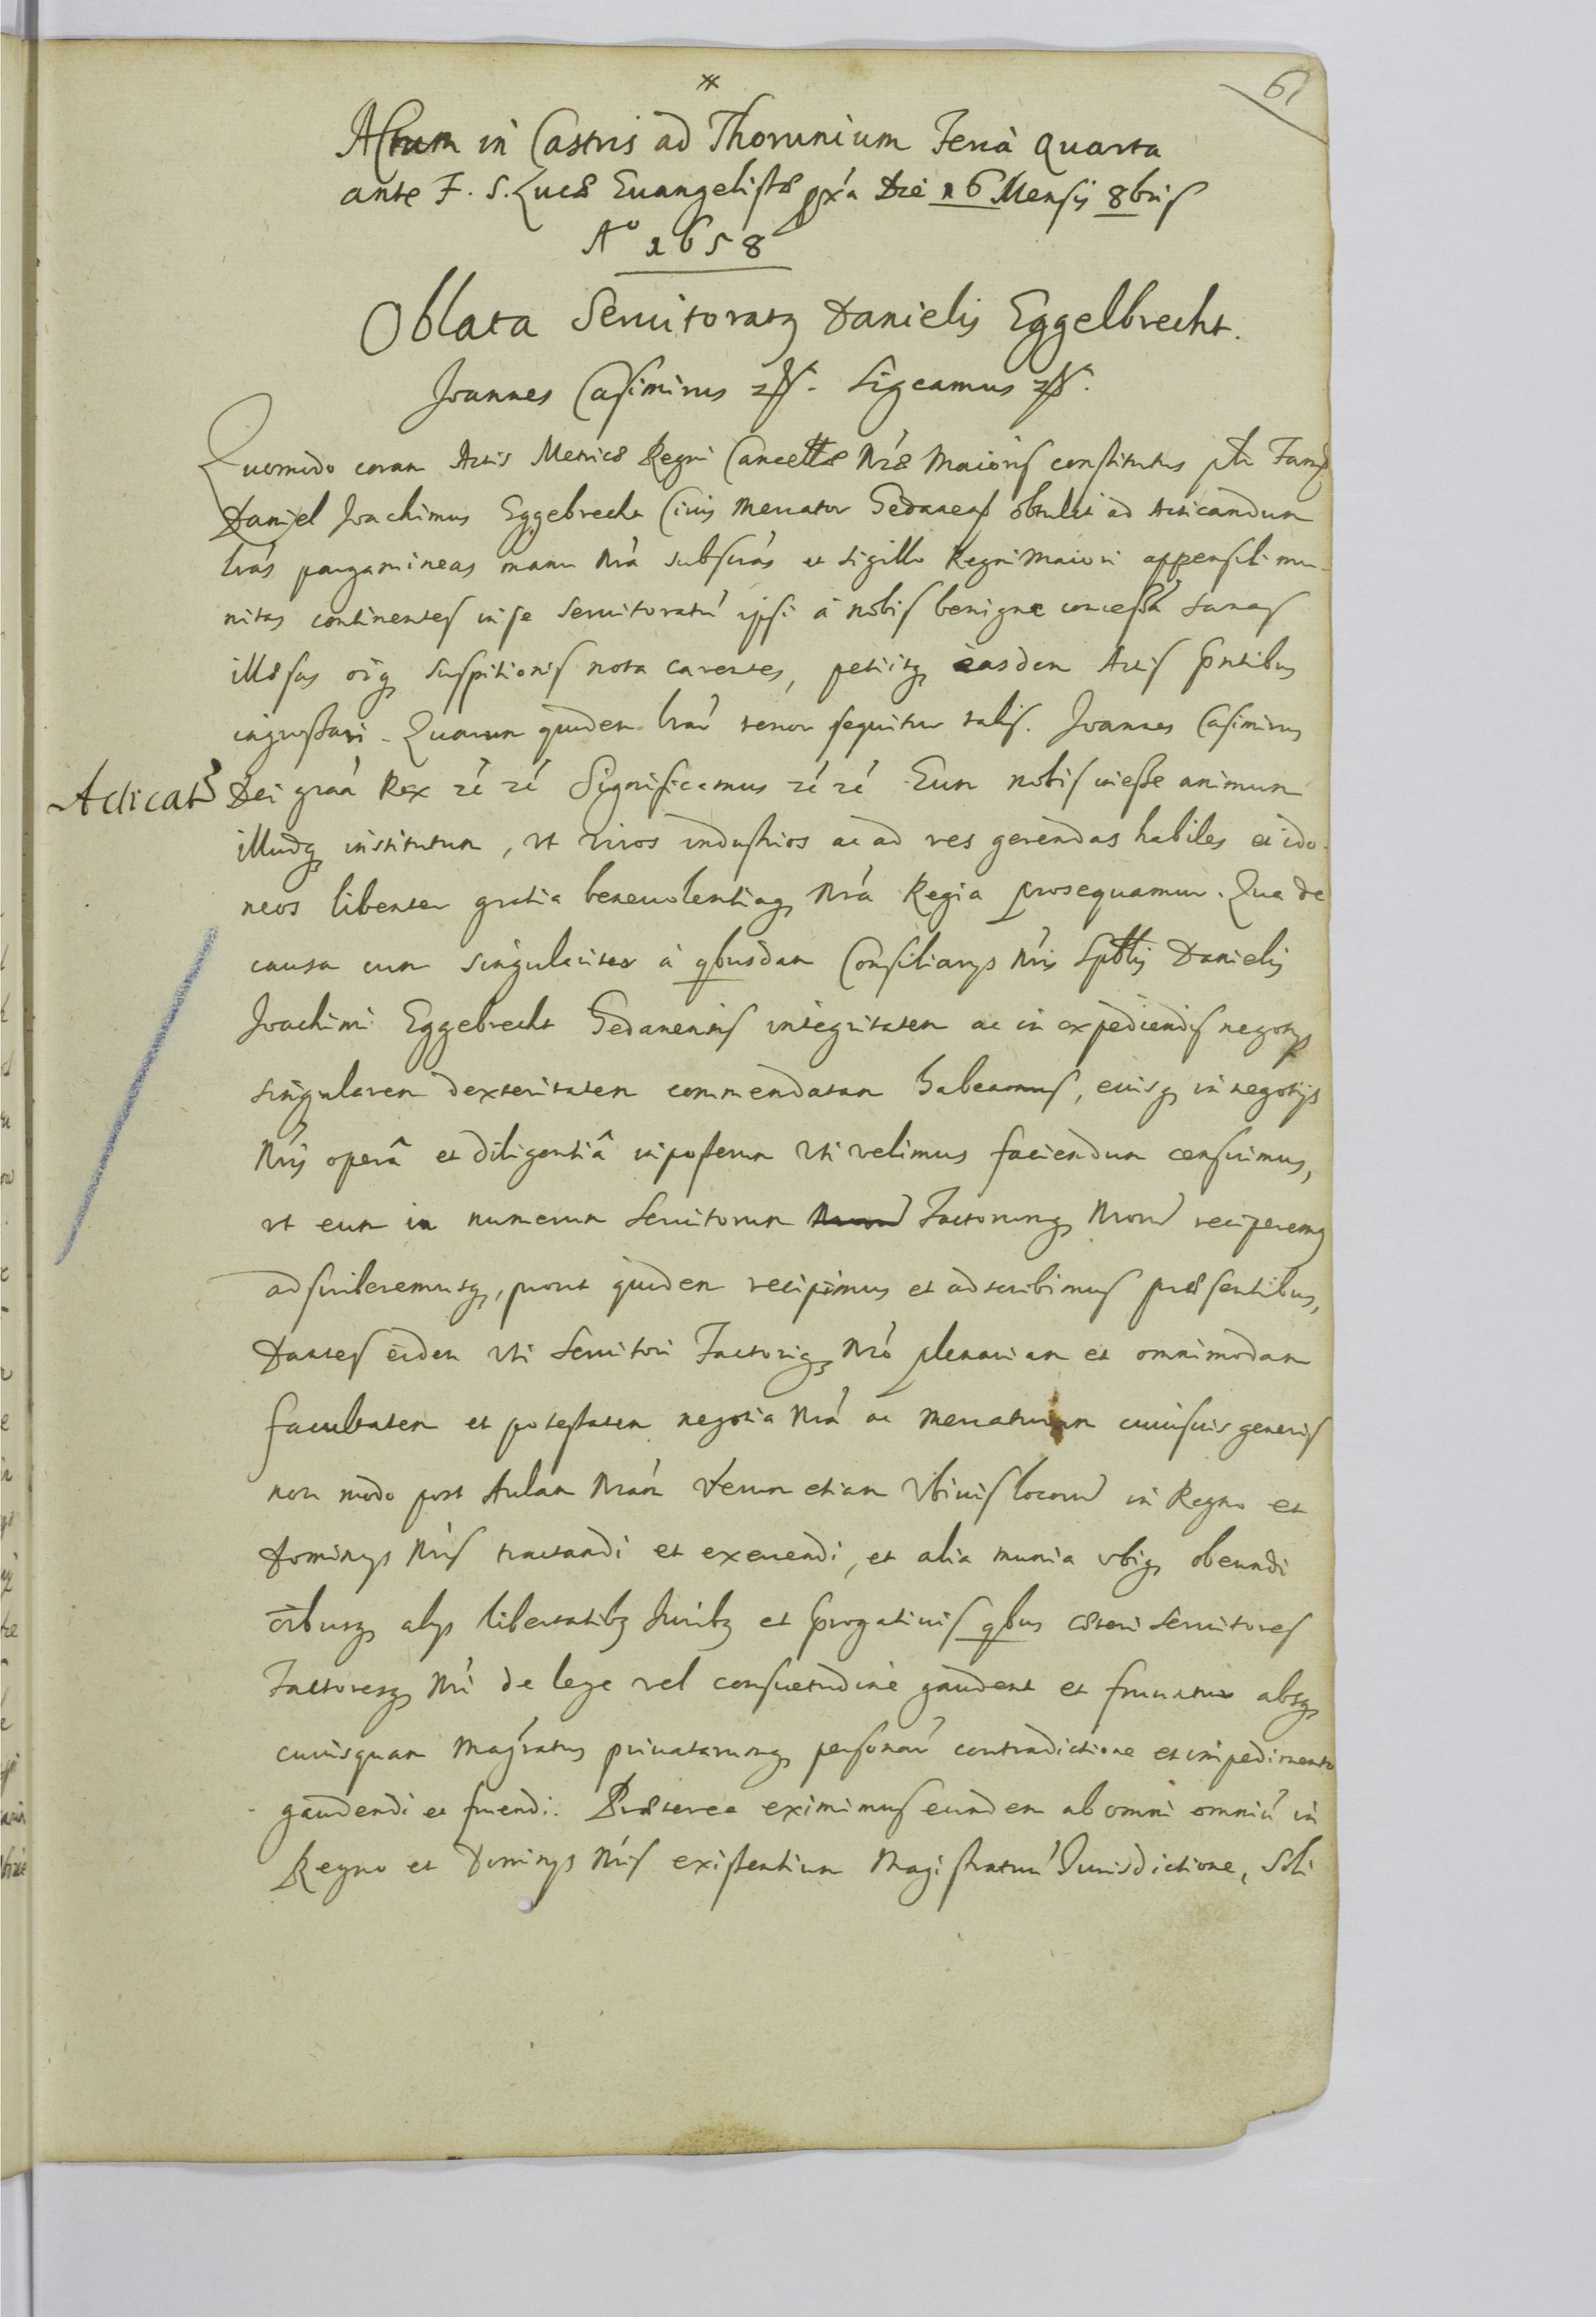 61
Actum in Castris ad Thorunium Feria Quarta
ante F. S. Lucæ Euangelistæ pxa Die 16 Mensis 8bris
Aº 1658
Oblata Seruitoratq Danielis Eggelbrecht.
Joannes Casimirus Sigcamus
Quomodo coram Actis Metricæ Regni Cancellæ Nræ Maioris constitutus ptr Fam
Daniel Joachimus Eggebrecht Ciuis Mercator Gedanens obtulit ad Acticandum
lras pargamineas manu Nra subscras et sigillo Regni Maiori appensili mu-
nitas continentes in se Seruitoratu ipsi à nobis benigne concessu sanas
illæsas oiq suspitionis nota carentes, petiitq easdem Actis pntibus
ingrossari. Quarum quidem lraru tenor sequitur talis. Joannes Casimirus
Acticat Dei graa Rex rc rc Significamus rc rc Eum nobis inesse animum
illudq institutum, vt viros industrios ac ad res gerendas habiles et ido-
neos libenter gratia beneuolentiaq Nra Regia prosequamur. Qua de
causa cum singulariter à qbusdam Consiliarys Nris Spblis Danielis
Joachimi Eggebrecht Gedanensis integritatem ac in expediendis negotys
singularem dexteritatem commendatam habeamus, eiusq in negotijs
Nris operâ et diligentiâ inposterum vti velimus faciendum censuimus,
vt eum in numerum Seruitorum Factorumq Nroru reciperemq
adscriberemusq, prout quidem recipimus et adscribimus præsentibus,
Dantes eidem vti Seruitori Factoriq Nro plenariam et omnimodam
facultatem et potestatem negotia Nra ac mercaturam cuiusuis generis
non modo post Aulam Nram verum etiam vbiuis locoru in Regno et
Dominys Nris tractandi et exercendi, et alia munia vbiq obeundi
oibusq alys libertatibq Juribq et prrogatiuis qbus cæteri Seruitores
Factoresq Nri de lege vel consuetudine gaudent et fruuntur absq
cuiusquam Magratus priuatarumq personaru contradictione et impedimento
gaudendi et fruendi. Præterea eximimus eundem ab omni omniu in
Regno et Dominys Nris existentium Magistratuu Jurisdictione, Soli